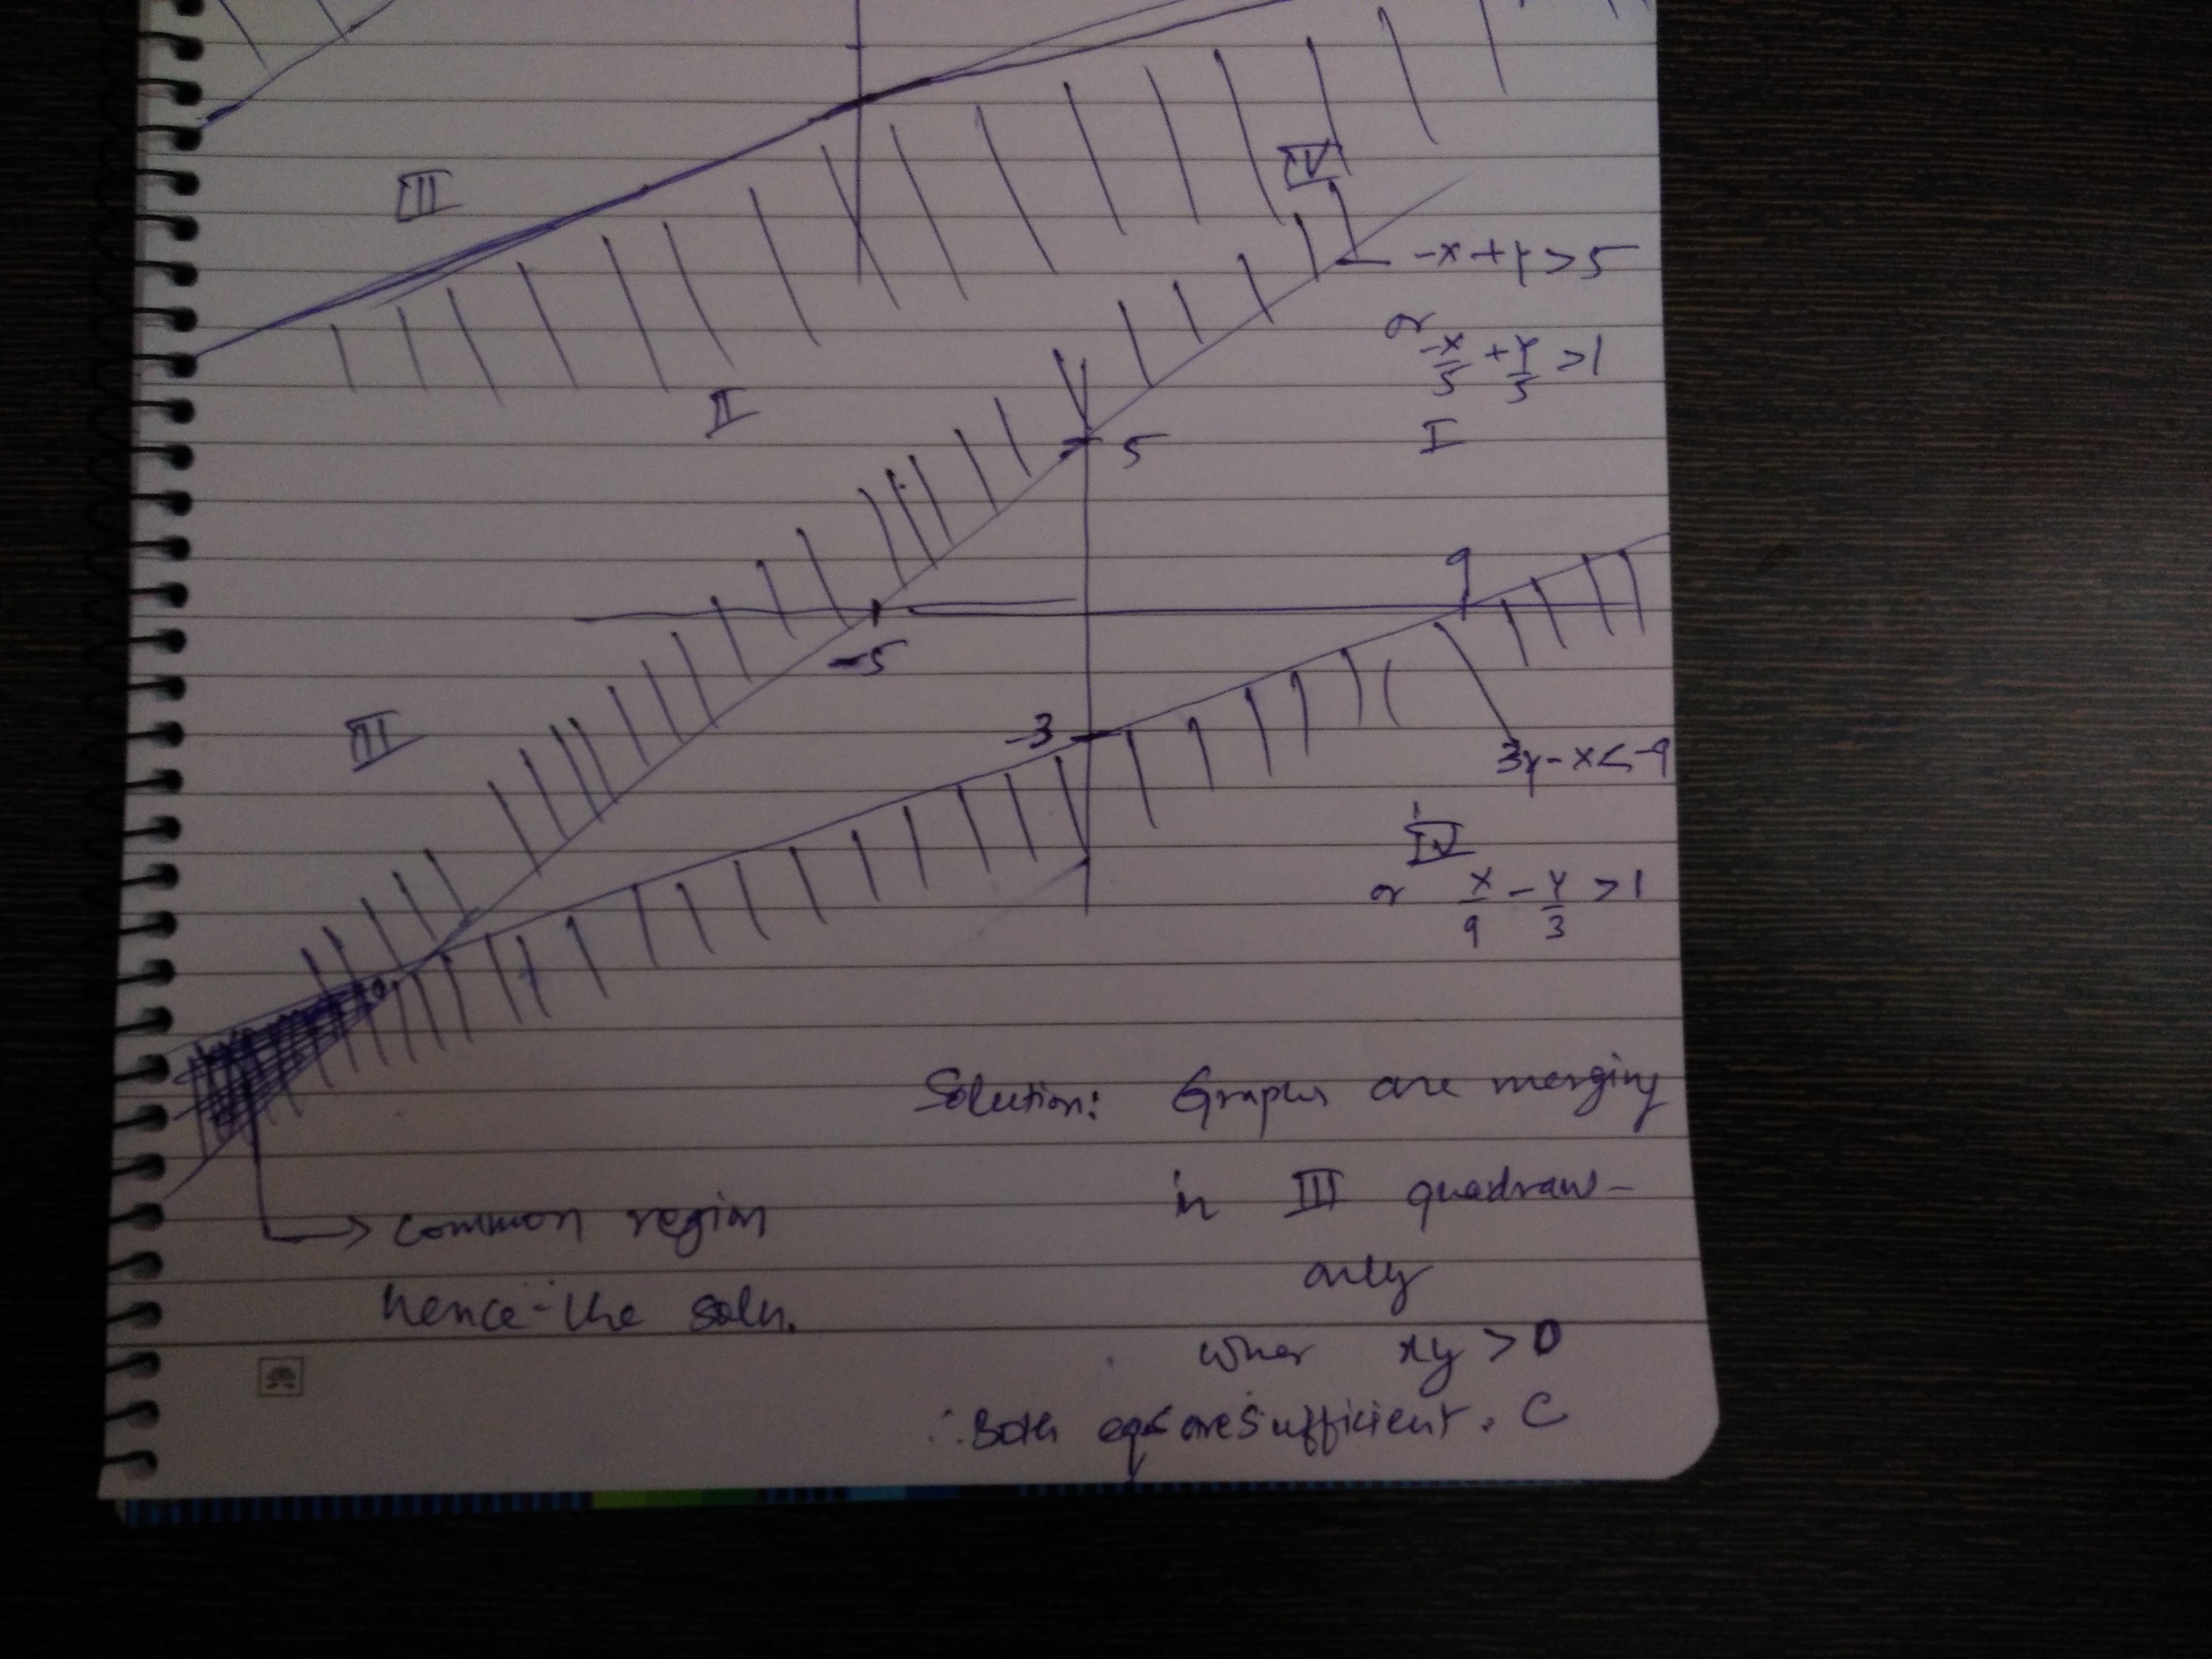 III
IV
-x+y>5
or
-x/5 + y/5 >1
II
I
5
9
-5
III
-3
3y-x<-9
IV
or x/9 - y/3 >1
Solution: Graphs are merging
in III quadran-
only
common region
hence the soln.
when xy>0
∴ Both eqs are sufficient. C